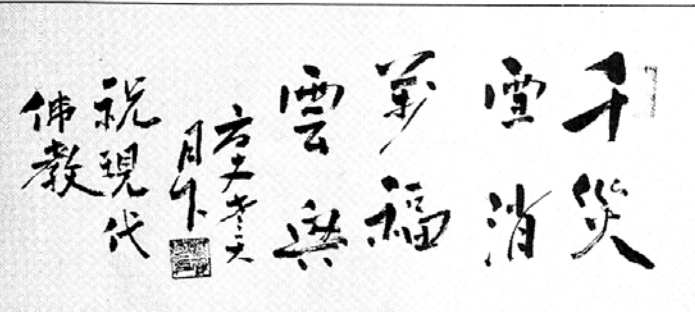 千災
雪消
萬福
雲興
方丈老天
月下
祝現代
佛教